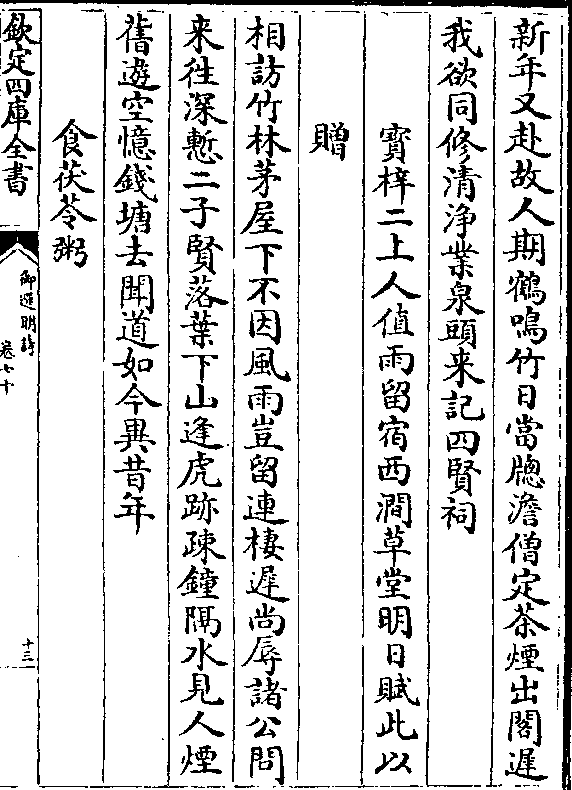 新年又赴故人期鶴鳴竹日當牕澹僧定茶煙出閣遲
我欲同修清淨業泉頭来記四賢祠
寳梓二上人值雨留宿西澗草堂明日賦此以
贈
相訪竹林茅屋下不因風雨豈留連棲遲尚辱諸公問
来徃深慙二子賢落葉下山逢虎跡疎鐘隔水見人煙
舊遊空憶錢塘去聞道如今異昔年
食茯苓粥
欽定四庫全書
御選明詩
卷七十
十三